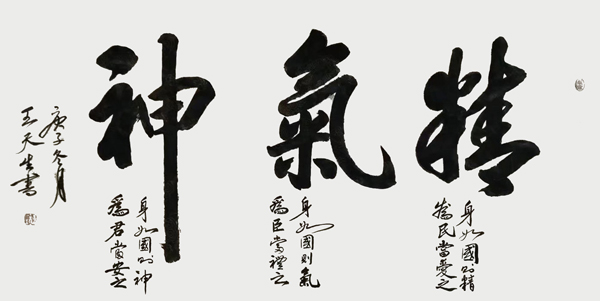 精
身如國則精
爲民當愛之
氣
身如國則氣
爲臣當禮之
神
身如國則神
爲君當安之
庚子冬月
王天生書